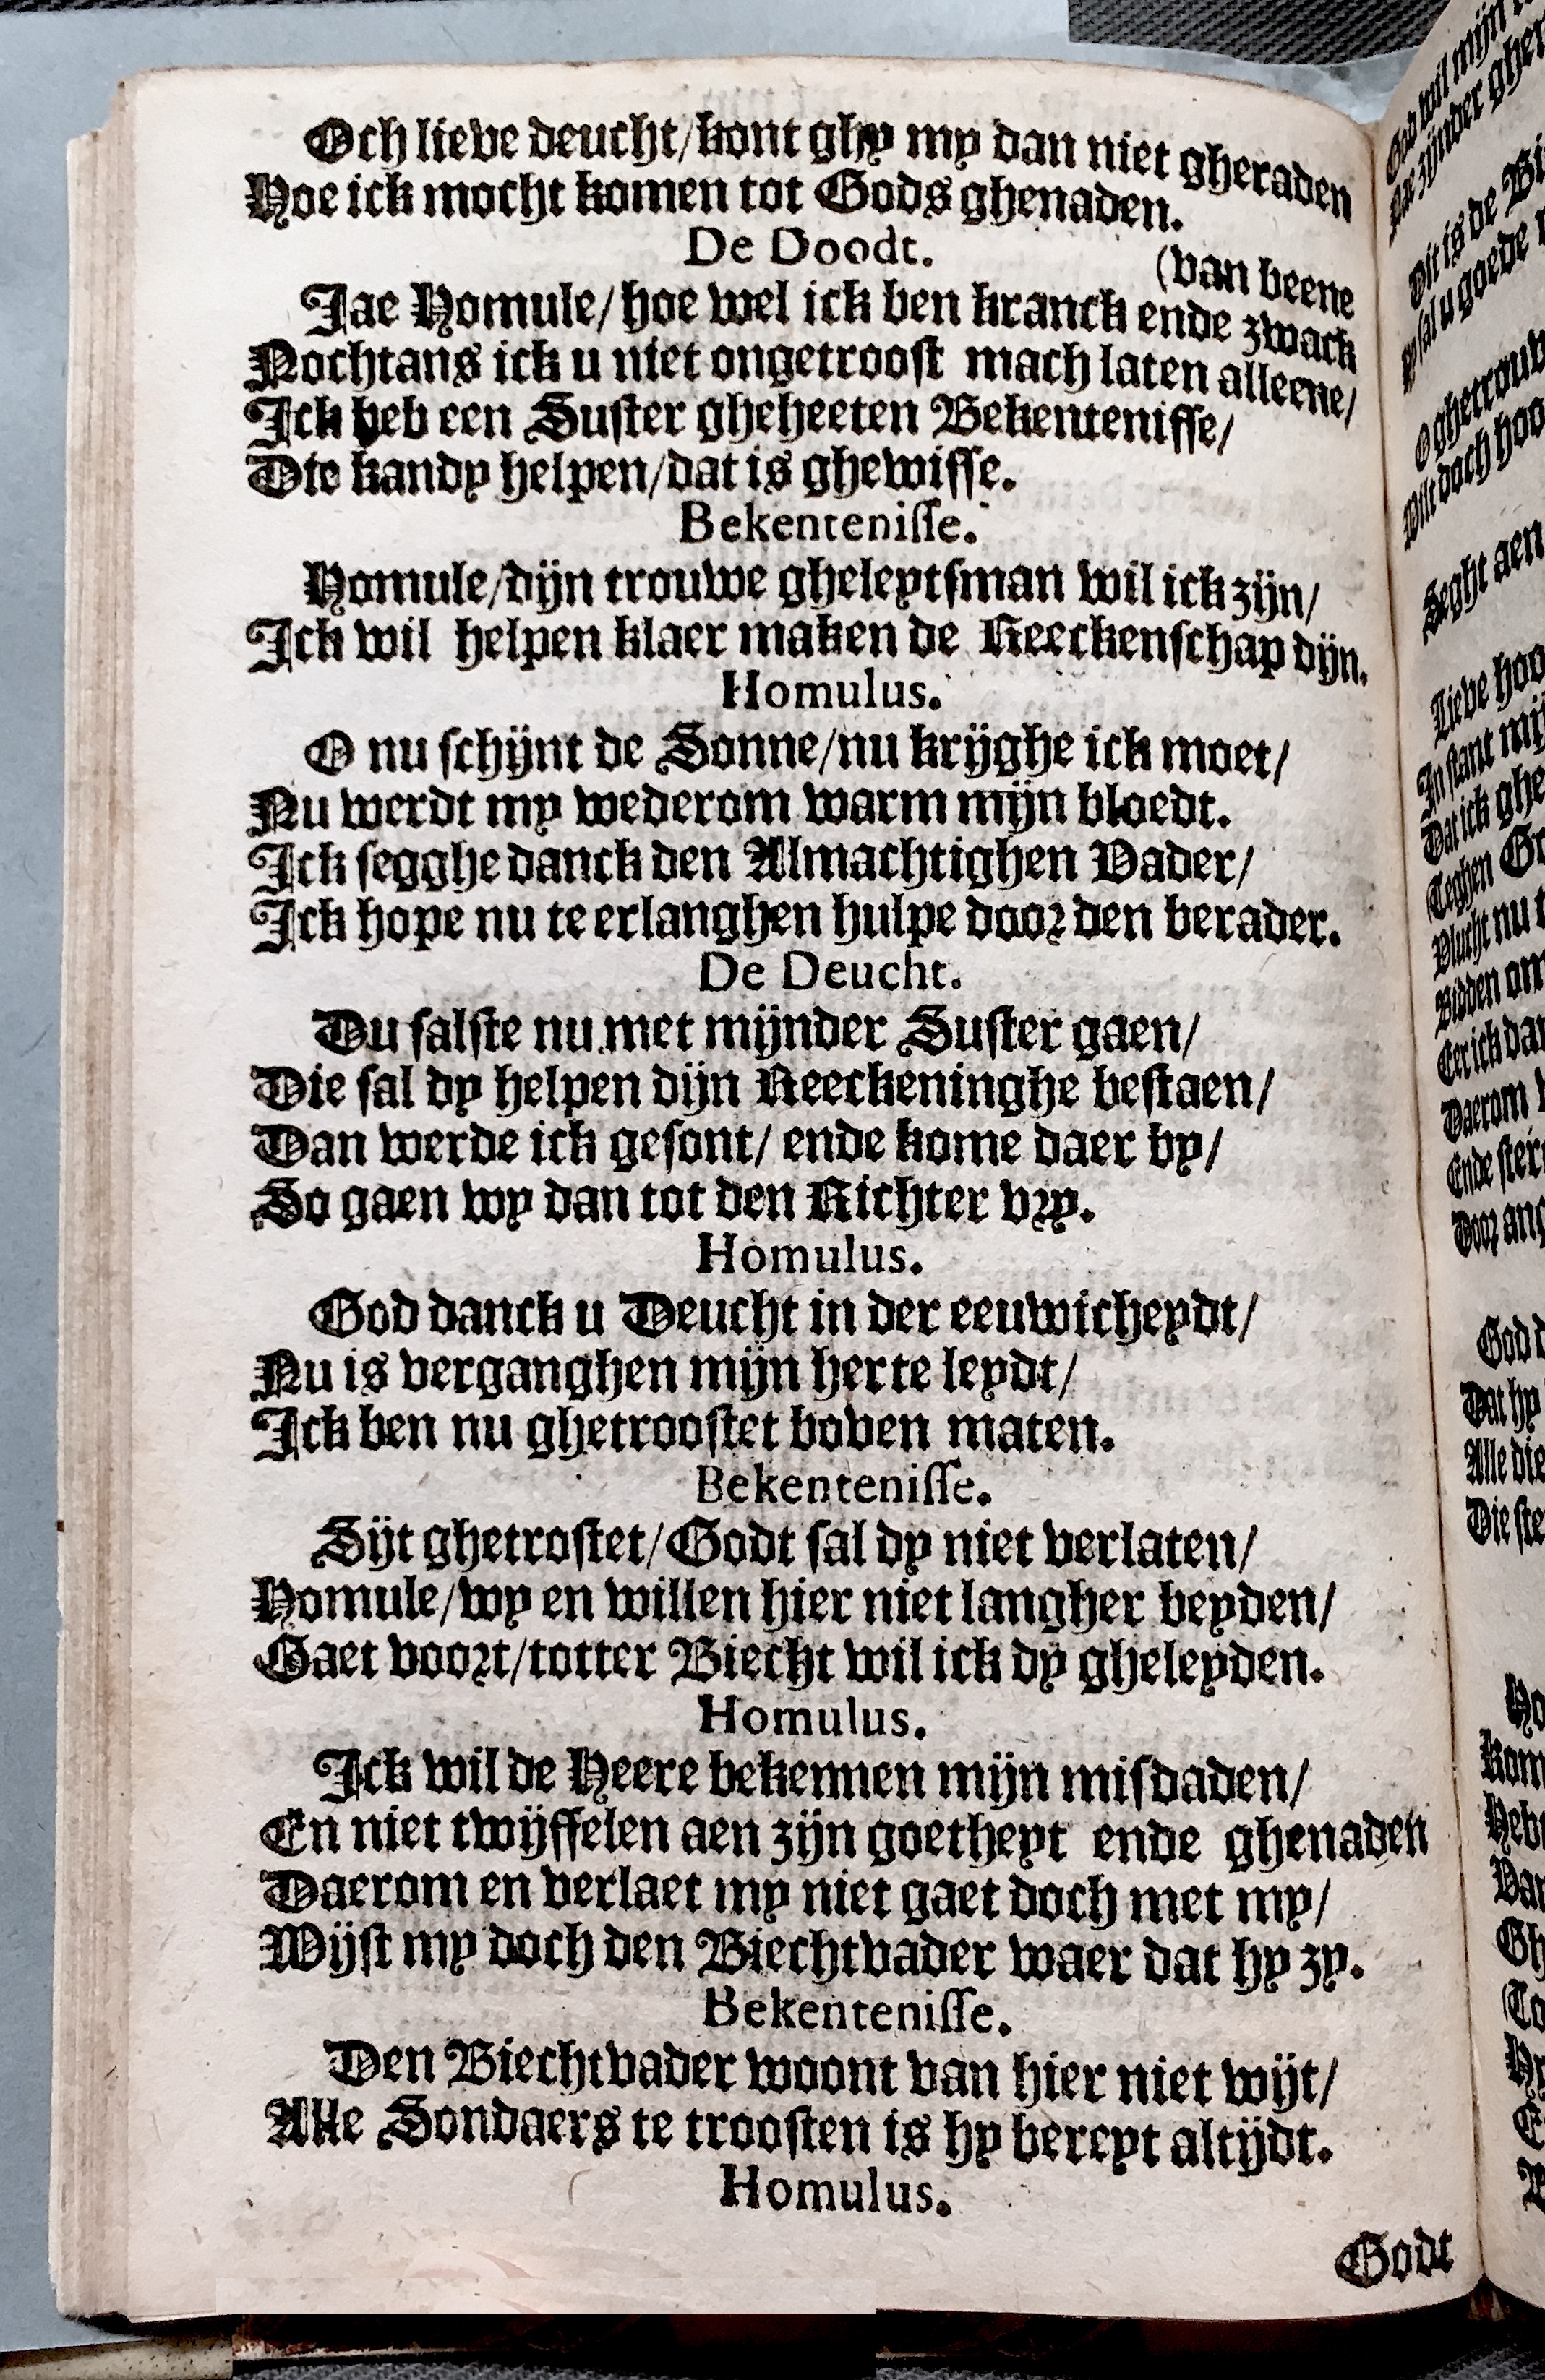 Och lieve deucht/kont ghy my dan niet gheraden
Hoe ick mocht komen tot Gods ghenaden.
De Doodt.
(van beene
Jae Homule/hoe wel ick ben kranck ende zwack
Nochtans ick u niet ongetroost mach laten alleene/
Ick heb een Suster gheheeten Bekentenisse/
Die kandy helpen/dat is ghewisse.
Bekentenisse.
Homule/dijn trouwe gheleytsman wil ick zijn/
Ick wil helpen klaer maken de Reeckenschap dijn.
Homulus.
O nu schijnt de Sonne/nu krijghe ick moet/
Nu werdt my wederom warm mijn bloedt.
Ick segghe danck den Almachtighen Vader/
Ick hope nu te erlanghen hulpe door den berader.
De Deucht.
Du salste nu met mijnder Suster gaen/
Die sal dy helpen dijn Reeckeninghe bestaen/
Dan werde ick gesont/ ende kome daer by/
So gaen wy dan tot den Richter vry.
Homulus.
God danck u Deucht in der eeuwicheydt/
Nu is verganghen mijn herte leydt/
Ick ben nu ghetroostet boven maten.
Bekentenisse.
Sijt ghetrostet/Godt sal dy niet verlaten/
Homule/wy en willen hier niet langher beyden/
Gaet voort/totter Biecht wil ick dy gheleyden.
Homulus.
Ick wil de Heere bekennen mijn misdaden/
En niet twijffelen aen zijn goetheyt ende ghenaden
Daerom en verlaet my niet gaet doch met my/
Wijst my doch den Biechtvader waer dat hy zy.
Bekentenisse.
Den Biechtvader woont van hier niet wijt/
Alle Sondaers te troosten is hy bereyt altijdt.
Homulus.
Godt
God wil mijn
Dit is de
sal u goede
O ghetrouw
Wilt doch hoo
Seght aen
Lieve hoo
In stant mij
Dat ick ghe
Teghen Go
Vlucht nu t
Bidden om
Eer ick dan
Daerom
Ende ster
Door ang
God d
Dat hy
Alle die
Die ste
Ho
Kom
Heb
Van
Gh